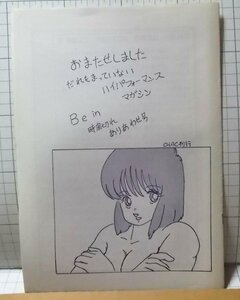 おまたせしました
だれもまっていない
ハイパフォーマンス
マガジン
Be in
時間切れ
ありあわせ号